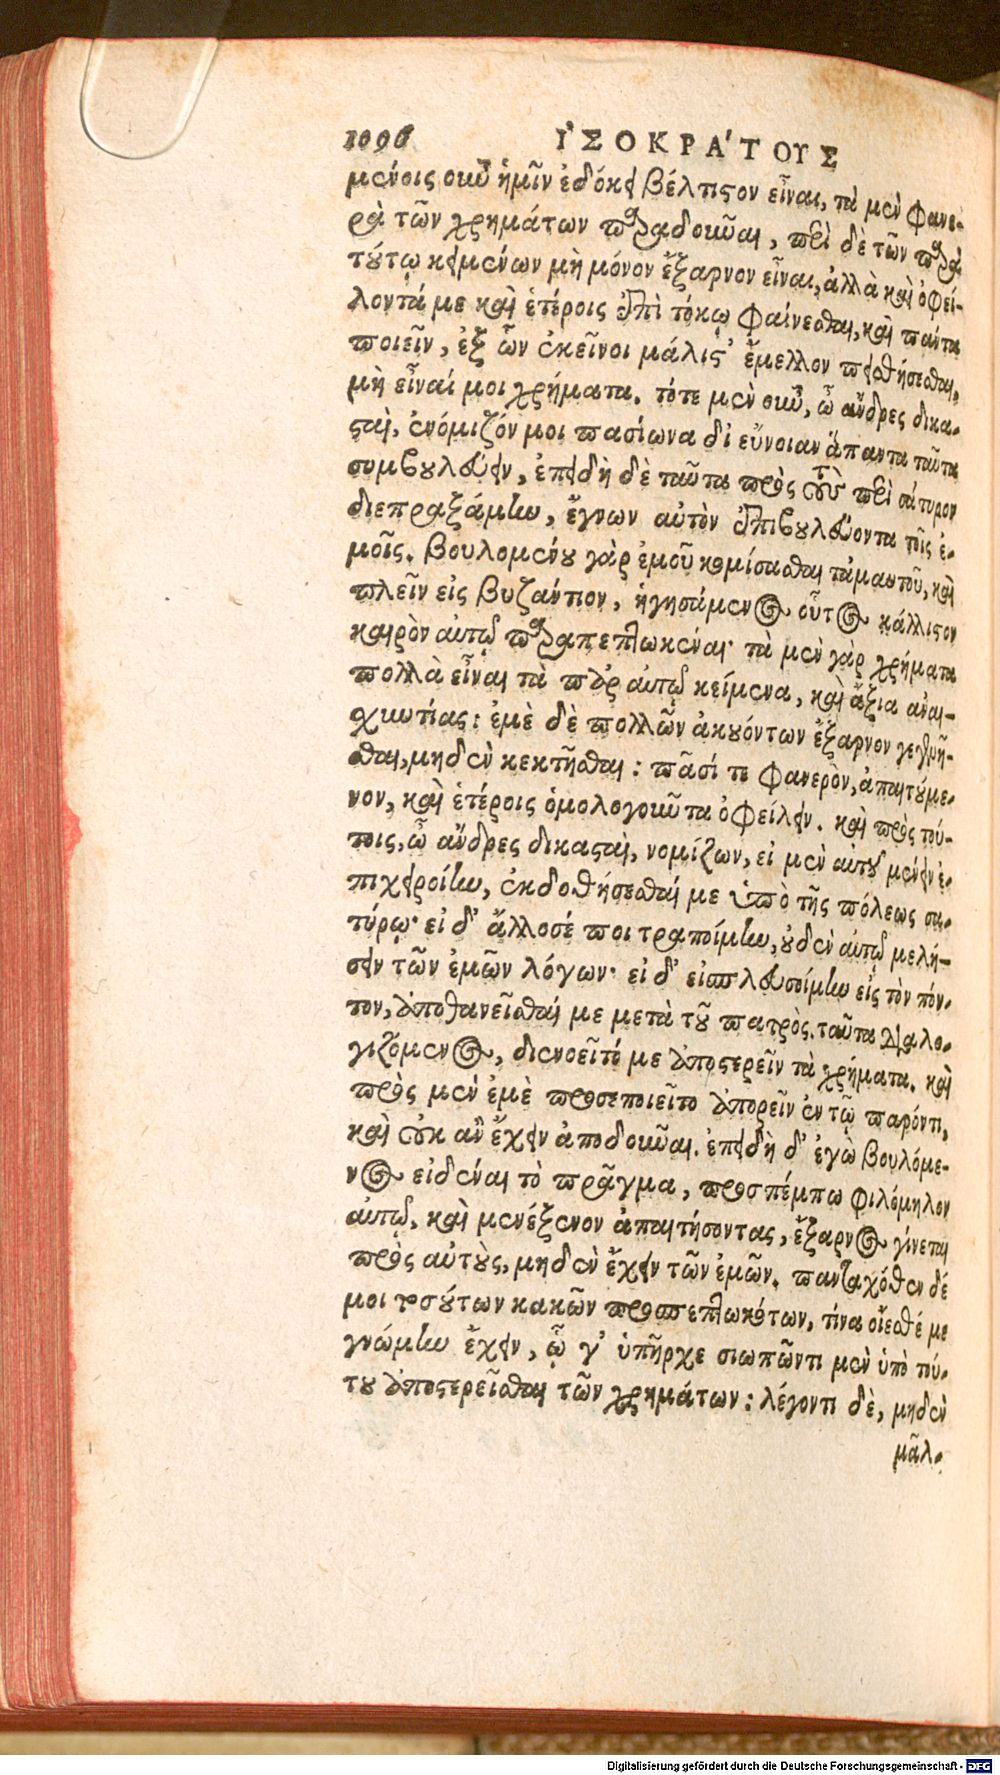 1096 ἸΣΟΚΡΆΤΟΥΣ
μένοις οὖν ἡμῖν ἐδόκει βέλτιστον εἶναι, τὰ μὲν φανε-
ρὰ τῶν χρημάτων παραδοῦναι, περὶ δὲ τῶν παρὰ
τούτῳ κειμένων μὴ μόνον ἔξαρνον εἶναι, ἀλλὰ καὶ ὀφεί-
λοντά με καὶ ἑτέροις ἐπὶ τόκῳ φαίνεσθαι, καὶ πάντα
ποιεῖν, ἐξ ὧν ἐκεῖνοι μάλιστ' ἔμελλον πεισθήσεσθαι,
μὴ εἶναί μοι χρήματα. τότε μὲν οὖν, ὦ ἄνδρες δικα-
σταὶ, ἐνόμιζόν μοι πασίωνα δι' εὔνοιαν ἅπαντα ταῦτα
συμβουλεύειν, ἐπειδὴ δὲ ταῦτα πρὸς τοὺς περὶ σάτυρον
διεπραξάμην, ἔγνων αὐτὸν ἐπιβουλεύοντα τοῖς ἐ-
μοῖς. βουλομένου γὰρ ἐμοῦ κομίσασθαι τἀμαυτοῦ, καὶ
πλεῖν εἰς βυζάντιον, ἡγησάμενος οὗτος κάλλιστον
καιρὸν αὐτῷ παραπεπτωκέναι· τὰ μὲν γὰρ χρήματα
πολλὰ εἶναι τὰ παρ' αὐτῷ κείμενα, καὶ ἄξια ἀναι-
σχυντίας: ἐμὲ δὲ πολλῶν ἀκουόντων ἔξαρνον γεγενῆ-
σθαι, μηδὲν κεκτῆσθαι: πᾶσί τε φανερὸν, ἀπαιτούμε-
νον, καὶ ἑτέροις ὁμολογοῦντα ὀφείλειν. καὶ πρὸς τού-
τοις, ὦ ἄνδρες δικασταὶ, νομίζων, εἰ μὲν αὐτοῦ μένειν ἐ-
πιχειροίην, ἐκδοθήσεσθαί με ὑπὸ τῆς πόλεως σα-
τύρῳ· εἰ δ' ἄλλοσέ ποι τραποίμην, οὐδὲν αὐτῷ μελή-
σειν τῶν ἐμῶν λόγων· εἰ δ' εἰσπλευσοίμην εἰς τὸν πόν-
τον, ἀποθανεῖσθαί με μετὰ τοῦ πατρὸς. ταῦτα διαλο-
γιζόμενος, διενοεῖτό με ἀποστερεῖν τὰ χρήματα. καὶ
πρὸς μὲν ἐμὲ προσεποιεῖτο ἀπορεῖν ἐν τῷ παρόντι,
καὶ οὐκ ἂν ἔχειν ἀποδοῦναι. ἐπειδὴ δ' ἐγὼ βουλόμε-
νος εἰδέναι τὸ πρᾶγμα, προσπέμπω φιλόμηλον
αὐτῷ, καὶ μενέξενον ἀπαιτήσοντας, ἔξαρνος γίνεται
πρὸς αὐτοὺς, μηδὲν ἔχειν τῶν ἐμῶν. πανταχόθεν δέ
μοι τοσούτων κακῶν προσπεπτωκότων, τίνα οἴεσθέ με
γνώμην ἔχειν, ᾧ γ' ὑπῆρχε σιωπῶντι μὲν ὑπὸ τού-
του ἀποστερεῖσθαι τῶν χρημάτων: λέγοντι δὲ, μηδὲν
μᾶλ-
Digitalisierung gefördert durch die Deutsche Forschungsgemeinschaft - DFG